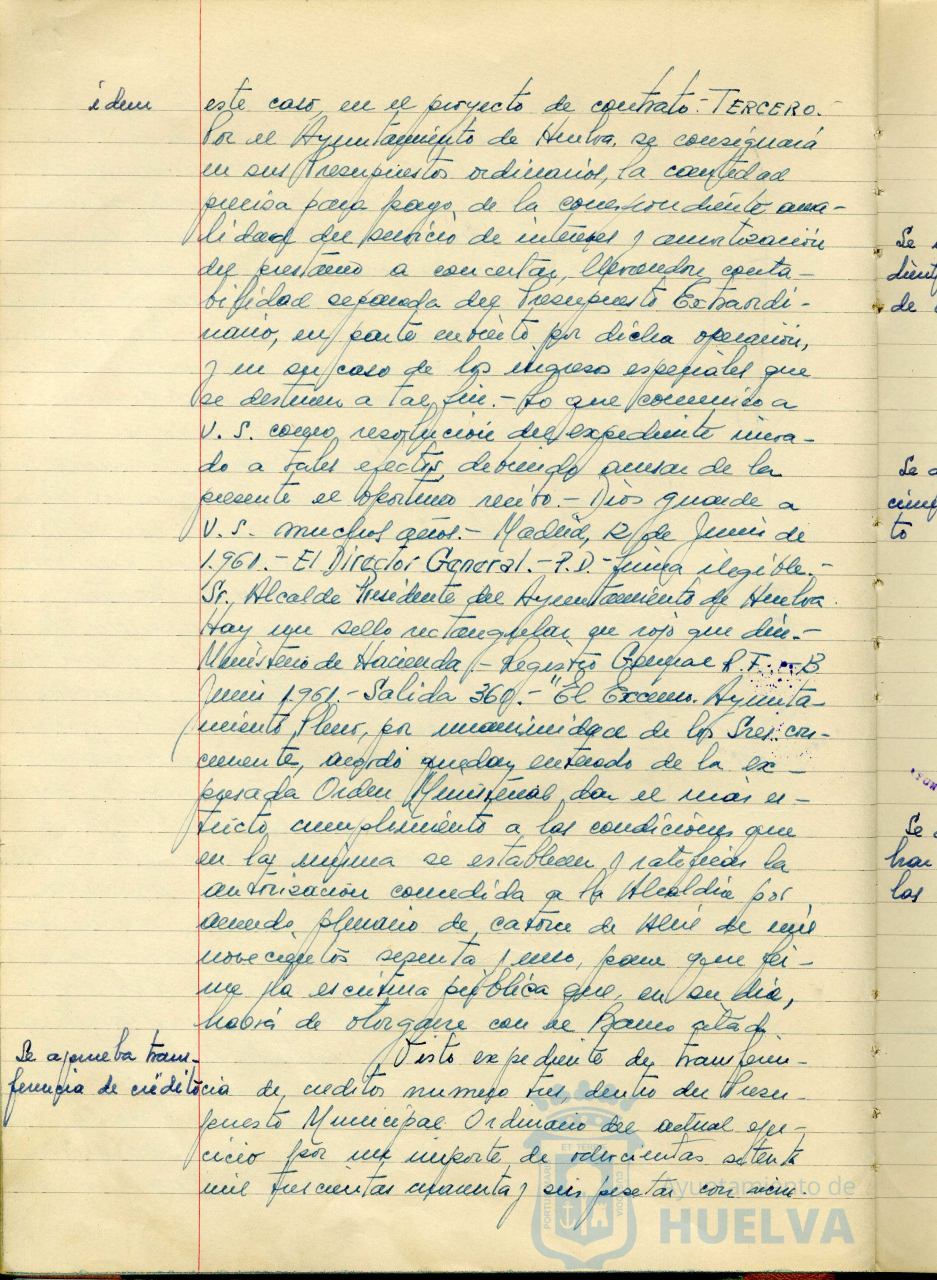 idem
este caso en el proyecto de contrato.- TERCERO.-
Por el Ayuntamiento de Huelva, se consignará
en sus Presupuestos ordinarios, la cantidad
precisa para pago, de la correspondiente anua-
lidad del servicio de intereses y amortización
del prestamo a concertar, llevandose conta-
bilidad separada del Presupuesto Extraordi-
nario, en parte cubierto por dicha operación,
y en su caso de los ingresos especiales que
se destinen a tal fin.- Lo que comunico a
V. S. como resolución del expediente inicia-
do a tales efectos debiendo acusar de la
presente el oportuno recibo.- Dios guarde a
V. S. muchos años.- Madrid, 12 de Junio de
1.961.- El Director General.- P.D.- firma ilegible.-
Sr. Alcalde Presidente del Ayuntamiento de Huelva.
Hay un sello rectangular en rojo que dice.-
Ministerio de Hacienda.- Registro General R.F.
Junio 1.961.- Salida 360.- "El Excmo. Ayunta-
miento Pleno, por unanimidad de los Sres. con-
currente, acordó quedar enterado de la ex-
presada Orden Ministerial, dar el más es-
tricto cumplimiento a las condiciones que
en la misma se establecen y ratificar la
autorización concedida a la Alcaldia por
acuerdo plenario de catorce de Abril de mil
novecientos sesenta y uno, para que fir-
me la escritura pública que, en su dia,
habrá de otorgarse con el Banco citado.
Se aprueba trans-
ferencia de crédito
Visto expediente de transferen-
cia de creditos numero tres dentro del Presu-
puesto Municipal Ordinario del actual ejer-
cicio por un importe de ochocientas setenta
mil trescientas cuarenta y seis pesetas con
Se
de
Se
to
Se
han
las
Ayuntamiento de
HUELVA